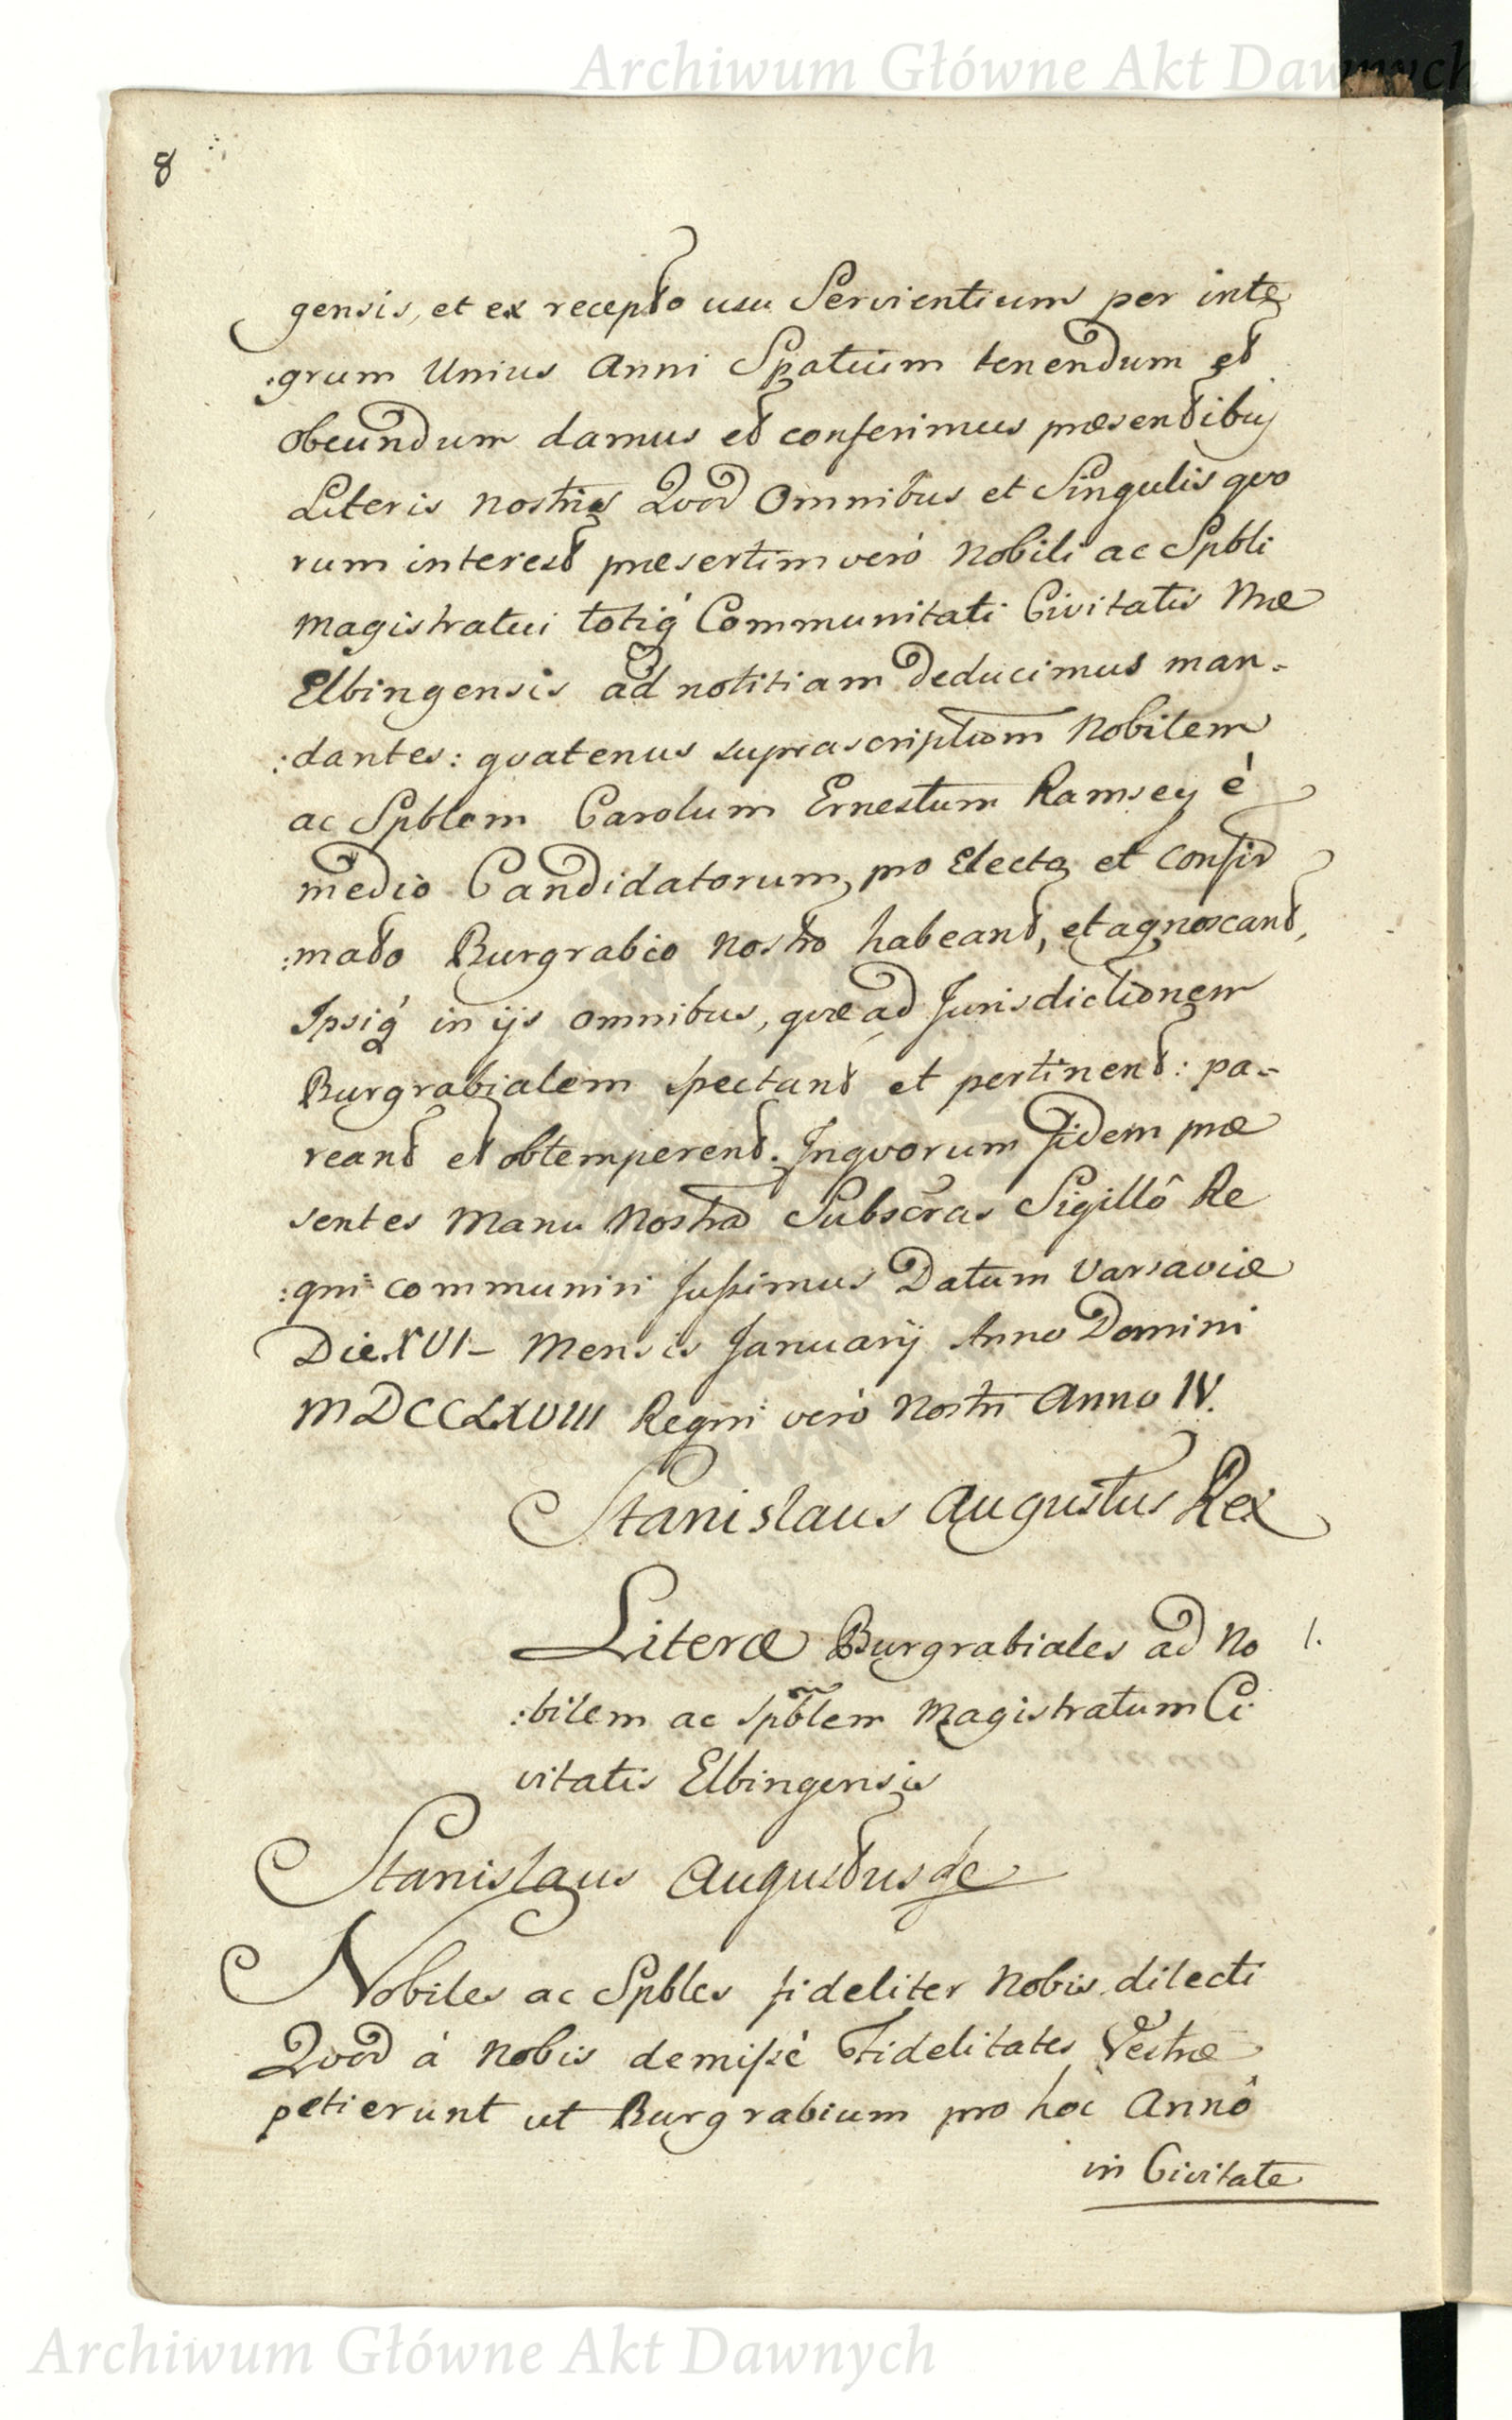 Archiwum Główne Akt Dawnych
8
gensis, et ex recepto usu Servientium per inte
:grum Unius Anni Spatium tenendum et
obeundum damus et conferimus præsentibus
Literis nostris Qvod Omnibus et Singulis qvo
rum interest præsertim verò Nobili ac Spbli
Magistratui totiq́ Communitati Civitatis Nræ
Elbingensis ad notitiam deducimus man-
:dantes: qvatenus suprascriptum Nobilem
ac Spblem Carolum Ernestum Ramsey è
medio Candidatorum, pro Electo et Confir
:mato Burgrabio nostro habeant, et agnoscant,
Ipsiq́ in ijs omnibus, qvæ ad Jurisdictionem
Burgrabialem spectant et pertinent: pa-
reant et obtemperent. In qvorum fidem præ
sentes Manu Nostra Subscras Sigillô Re
:gni communiri jussimus Datum Varsaviæ
Die XVI- Mensis Januarij Anno Domini
MDCCLXVIII Regni verò Nostri Anno IV.
Stanislaus Augustus Rex
Literæ Burgrabiales ad No 1.
:bilem ac Spblem Magistratum Ci
vitatis Elbingensis
Stanislaus Augustus &c
Nobiles ac Spbles fideliter Nobis dilecti
Qvod à Nobis demissè Fidelitates Vestræ
petierunt ut Burgrabium pro hoc Annô
in Civitate
Archiwum Główne Akt Dawnych